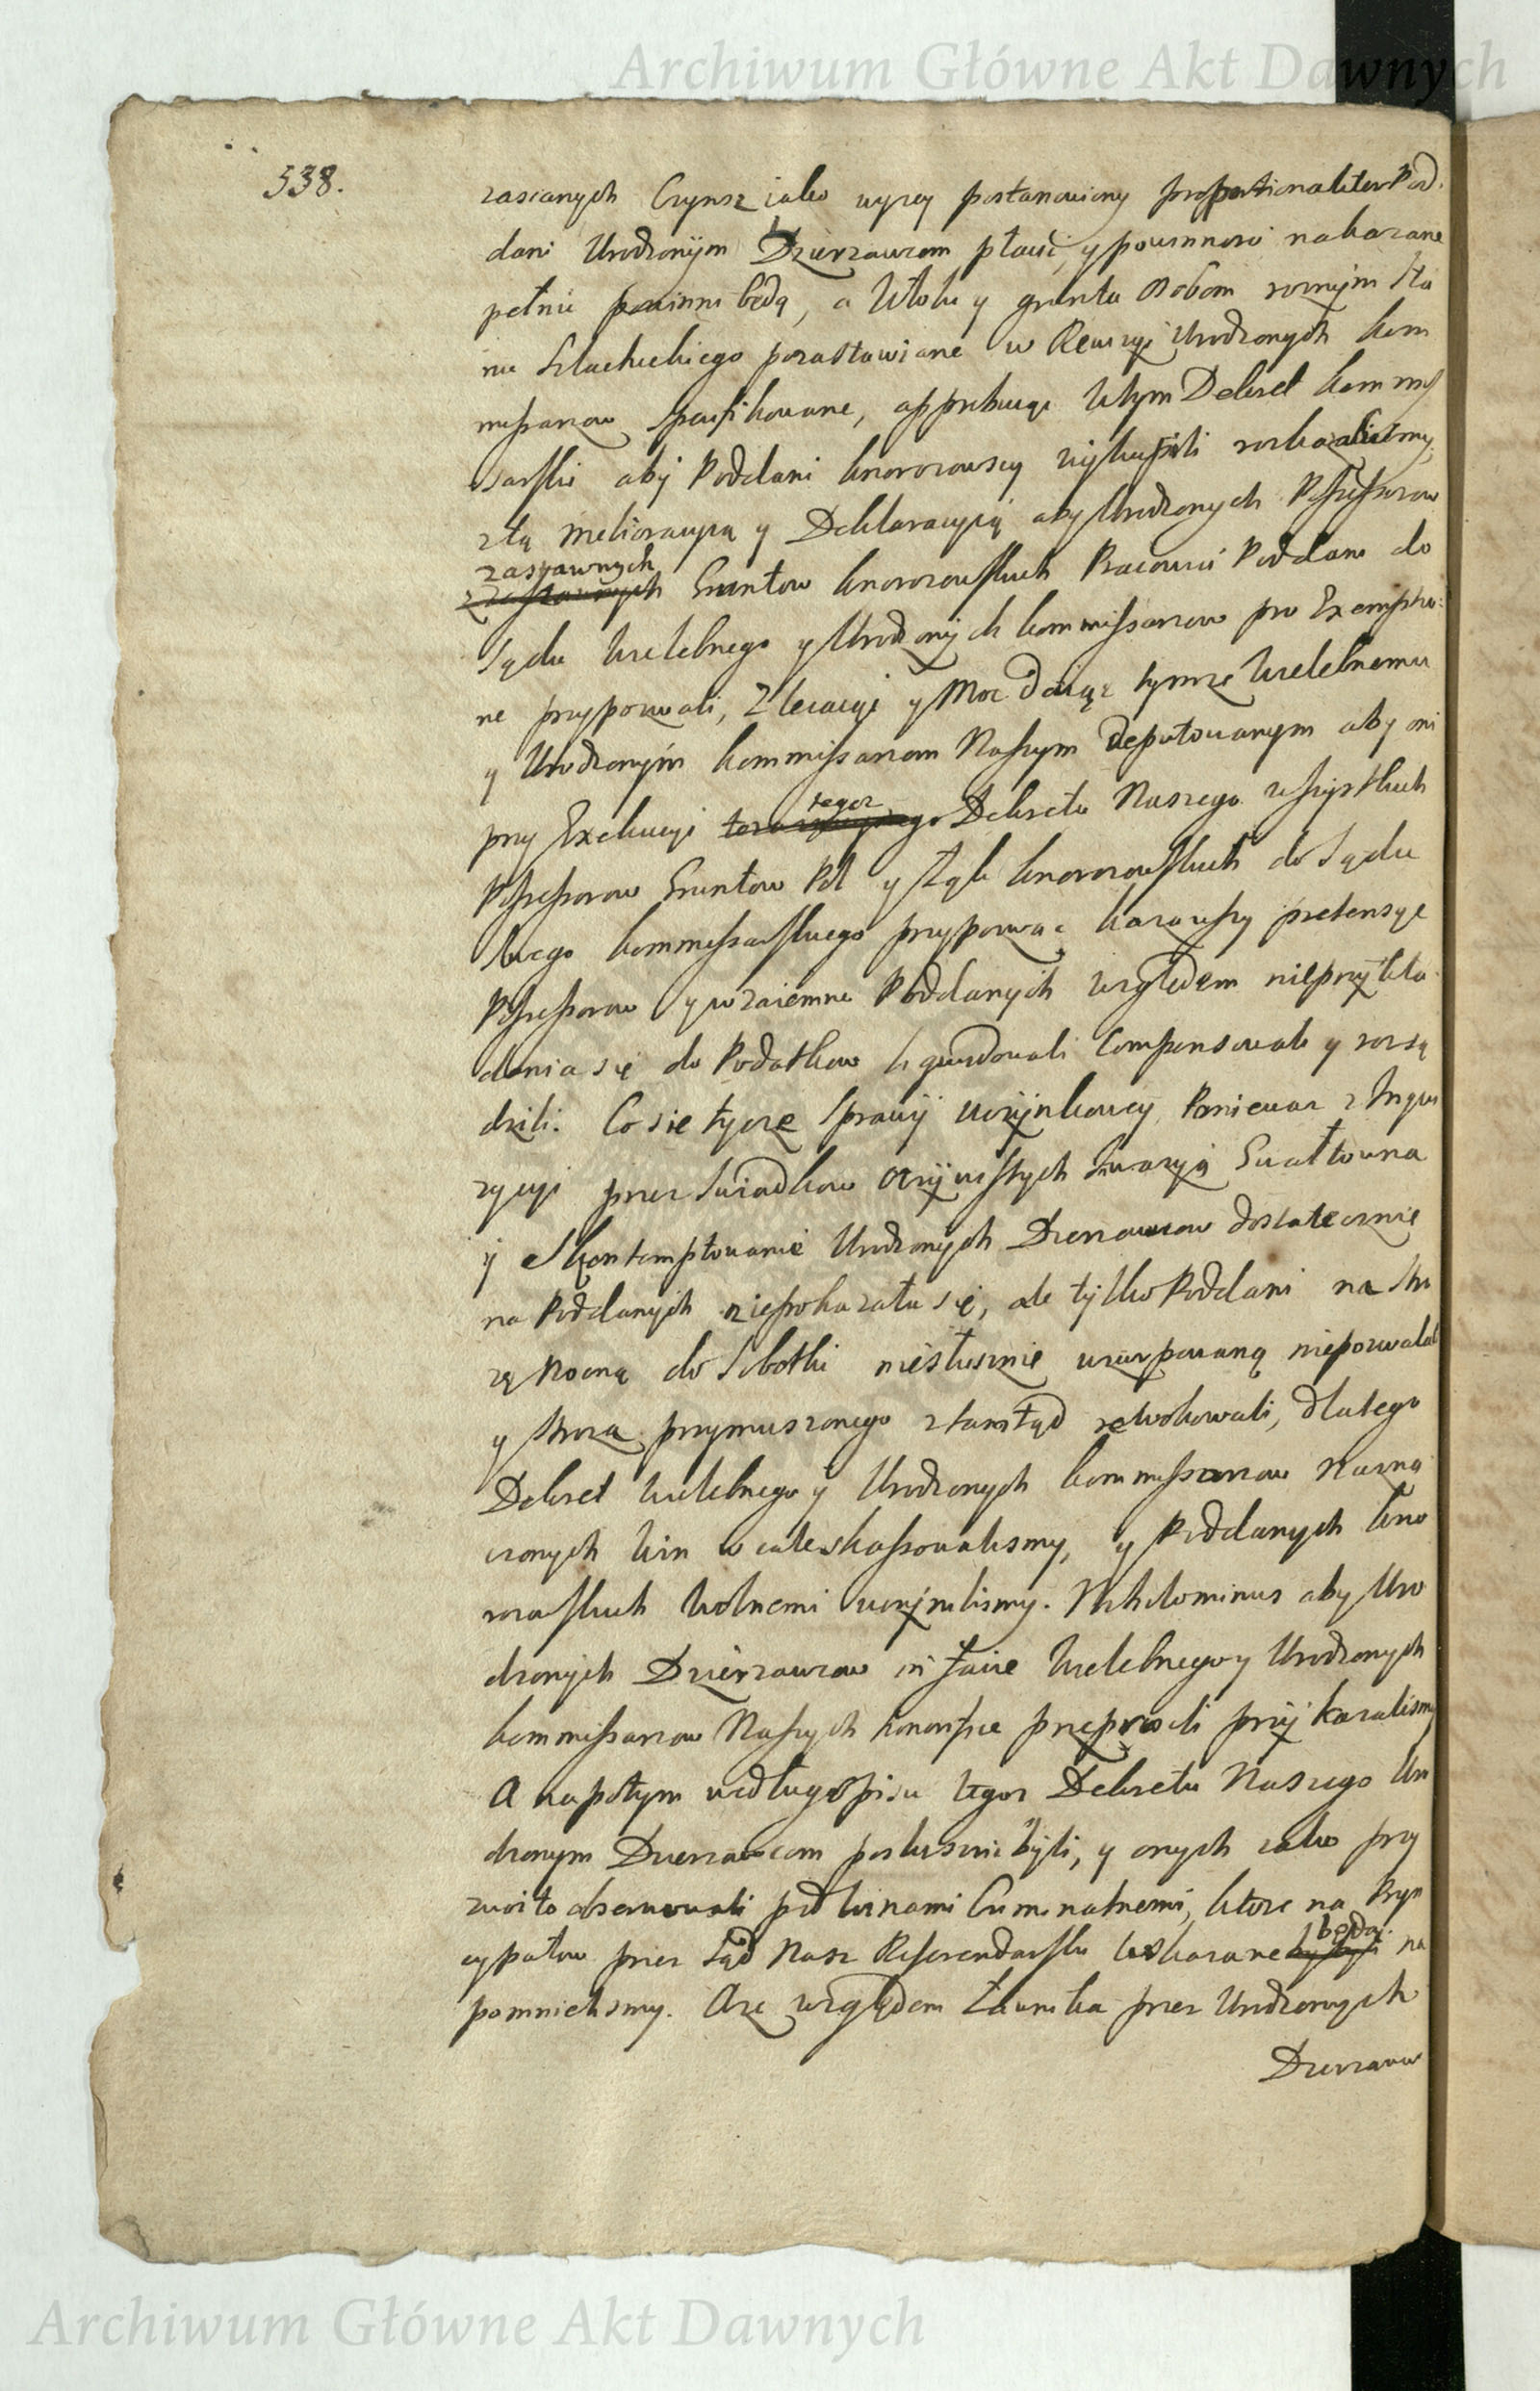 Archiwum Główne Akt Dawnych
538.
zasianych Czynsz iako wyzey postanowiony proportionaliter Pod.
dani Urodzonym Dzierzawcom płacić, y powinnosci nakazane
pełnic powinni będą, a Włoki y grunta osobom roznym Sta
nu Szlacheckiego pozastawiane w Rewizyi Urodzonych kom
missarzow specifikowane, approbuiąc w tym Dekret kommis
sarski aby Poddani knorozowscy wykupili roskazalismy,
z tą melioracyią y Deklaracyią aby Urodzonych Possessorow
zastawnych Gruntow knorozowskich Pracowici Poddani do
Sądu Wielebnego y Urodzonych kommissarzow pro Exemptio:
ne przypozwali, Zlecaiąc y Moc daiąc tymze Wielebnemu
y Urodzonym kommissarzom Naszym deputowanym aby oni
przy Exekucyi tegoz Dekretu Naszego wszystkich
Possessorow Gruntow Pol y Łąk knorozowskich do Sądu
Swego kommissarskiego przypozwac kazawszy pretensye
Possessorow y wzaiemne Poddanych względem nieprzykła
dania się do Podatkow likwidowali Compensowali y rozsą
dzili. Co się tycze Sprawy uczynkowey, Poniewaz z Inqui
zycyi przez Swiadkow oczywistych Inwazyia Gwałtowna
y Skontemptowanie Urodzonych Dzierzawcow dostatecznie
na Poddanych niepokazała się, ale tylko Poddani na Stro
zą Nocną do Sobotki niesłusznie uzurpowaną niepozwalali
y Stroza przymuszonego ztamtąd rewokowali, dlatego
Dekret Wielebnego y Urodzonych kommissarzow Nazna
czonych Win w cale skassowalismy, y Poddanych kno
rozowskich Wolnemi uczynilismy. Nihilominus aby Uro
dzonych Dzierzawcow in facie Wielebnego y Urodzonych
kommissarzow Naszych konorifice przeprosili przykazalismy
A napotym według opisu tegoz Dekretu Naszego Uro
dzonym Dzierzawcom posłusznie byli, y onych iako przy
zwoito obserwowali pod winami Criminalnemi, ktore na Pryn
cypałow przez Sąd Nasz Referendarski wskazane będą na
pomnielismy. A ze względem Ławnika przez Urodzonych
Dzierzaw
Archiwum Główne Akt Dawnych